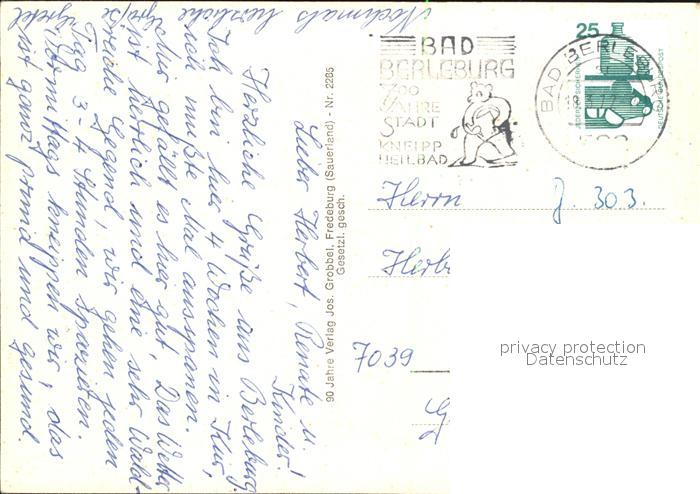 Lieber Herbert, Renate u.
Kinder!
Herzliche Grüße aus Berleburg.
Ich bin hier 4 Wochen in Kur,
ich mußte Mal ausspannen.
Mir gefällt es hier gut. Das Wetter
ist herrlich und eine sehr Wald-
reiche Gegend, wir gehen jeden
Tag 3-4 Stunden spazieren.
Vormittags kneippen wir, das
ist ganz prima und gesund.
Nochmals herzliche
Grüße
90 Jahre Verlag Jos. Grobbel, Fredeburg (Sauerland) - Nr. 2265
Gesetzl. gesch.
BAD
BERLEBURG
700
JAHRE
STADT
KNEIPP
HEILBAD
BAD BERLE
25
JEDERZEIT SICHERHEIT
DEUTSCHE BUNDESPOST
Herrn
J. 303.
Herb
7039
privacy protection
Datenschutz